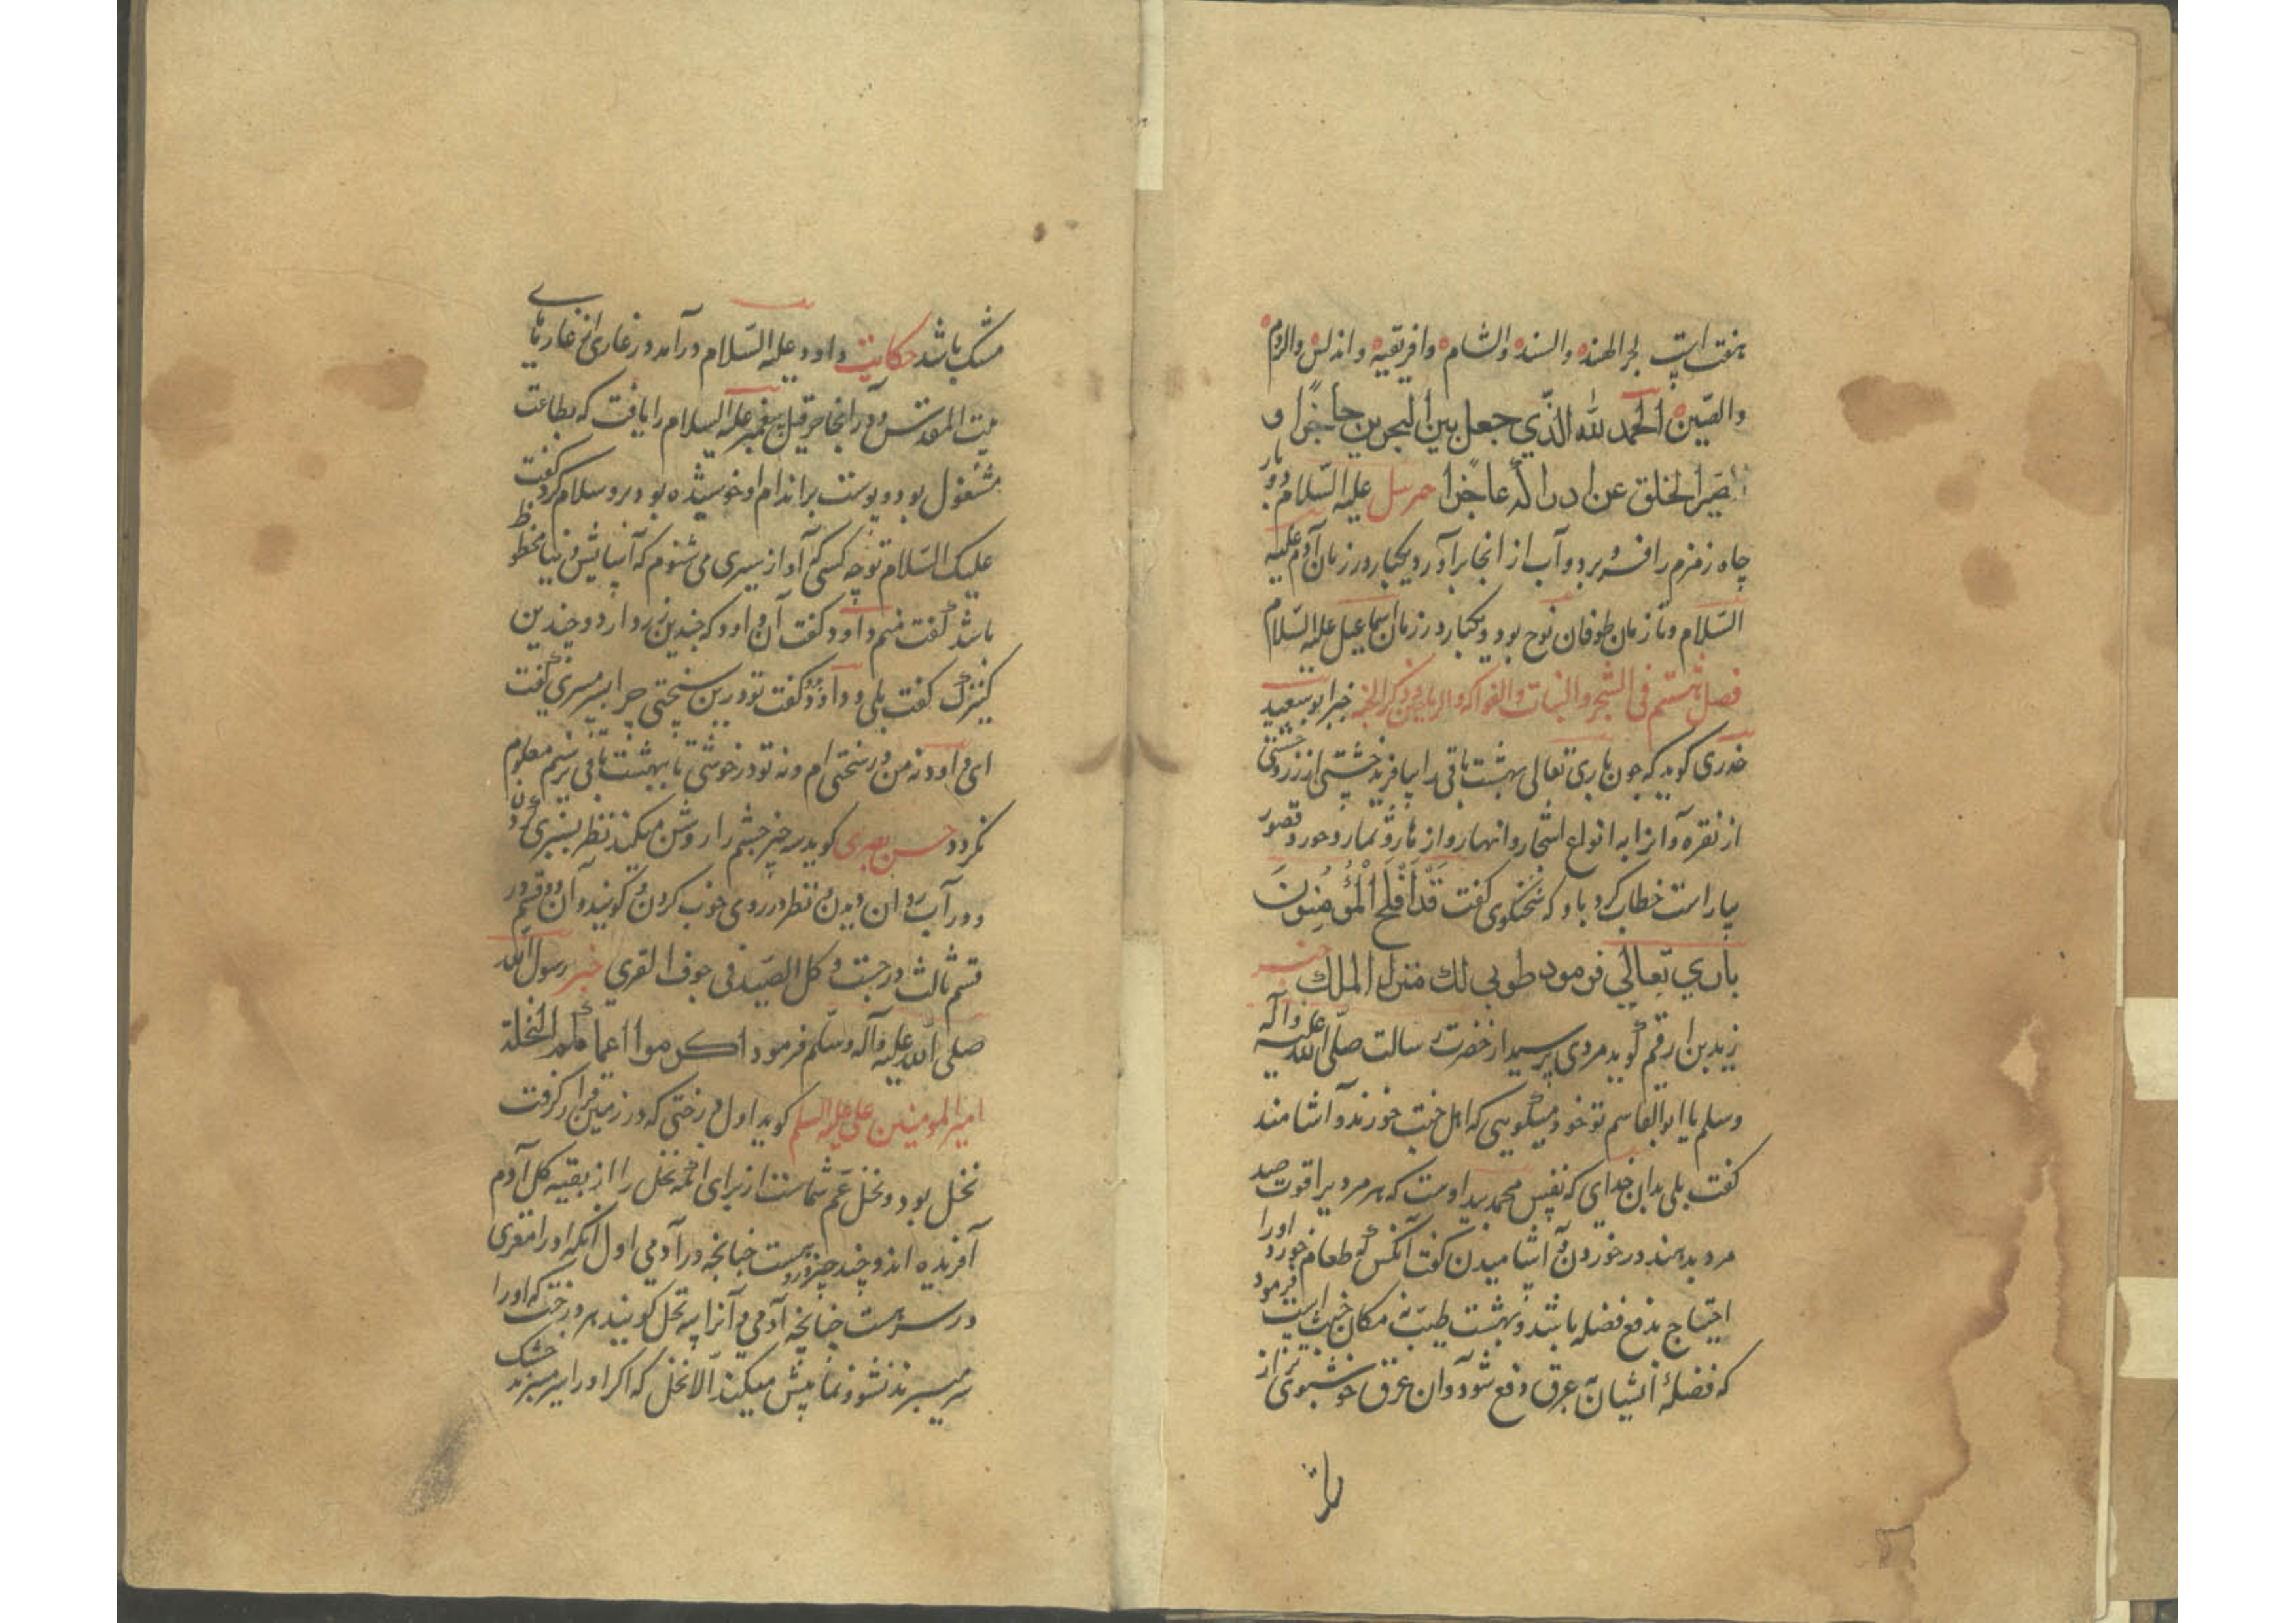 هفت است بحر الهند والسند والشام وافریقیه واندلس والروم
والصین الحمد لله الذی جعل بین البحرین حاجزا و
صیر الخلق عن ادراکه عاجزا جبرئیل علیه السلام دو بار
چاه زمزم را فرو برد و آب از انجا برآورد یکبار در زمان آدم علیه
السلام و تا زمان طوفان نوح بود و یکبار در زمان اسماعیل علیه السلام
فصل هشتم فی الشجر والنبات والفواکه والریاحین وذکر الجنه خبر ابو سعید
خدری کوید که چون باری تعالی بهشت باقی را بیافرید خشتی از زر و خشتی
از نقره و آنرا به انواع اشجار و انهار و ازهار و ثمار و حور و قصور
بیاراست خطاب کرد باو که سخنکوی کفت قَد اَفلَحَ المُؤمِنونَ
باری تعالی فرمود طوبی لك منزل الملك خبر
زید بن ارقم کوید مردی پرسید از حضرت رسالت صلی الله علیه وآله
وسلم یا ابوالقاسم تو خود میکویی که اهل جنت خورند و آشامند
کفت بلی بدان خدای که نفس محمد بید اوست که هر مردیرا قوت صد
مرد بدهند در خوردن و آشامیدن کفت آنکس که طعام خورد اورا
احتیاج بدفع فضله باشد و بهشت طیب نه مکان خبث است فرمود
که فضلۀ ایشان به عرق دفع شود و آن عرق خوشبوی تر از
مشک باشد حکایت داود علیه السلام درآمد در غاری از غارهای
بیت المقدس و در آنجا حزقیل پیغمبر علیه السلام را یافت که بطاعت
مشغول بود و پوست بر اندام او خوشیده بود برو سلام کرد کفت
علیک السلام تو چه کسی که آواز سیری می شنوم که آسایش دنیا محظوظ
باشد کفت منم داود کفت آن داود که چندین زن دارد و چندین
کنیزک کفت بلی و داود کفت تو درین سختی چرا بسر میبری کفت
ای داود نه من در سختی ام و نه تو در خوشی تا ببهشت باقی نرسیم معلوم
نکردد حسن بصری کوید سه چیز چشم را روشن میکند نظر بسبزی کردن
و در آب روان دیدن و نظر در روی خوب کردن کویند و آن دو قسم در
قسم ثالث درجست و کل الصید فی جوف الفری خبر رسول الله
صلی الله علیه وآله وسلم فرمود اکرموا اعمامکم النخلة
امیر المومنین علی علیه السلم کوید اول درختی که در زمین قرار کرفت
نخل بود و نخل عم شماست از برای آنکه نخل را از بقیه کل آدم
آفریده اند و چند چیز دروست چنانچه در آدمی اول آنکه اورا مغزی
در سرست چنانچه آدمی و آنرا پیه نخل کویند هر درخت که اورا
سر میبرند نشو و نما بیش میکند الا نخل که اکر اورا سر میبرند خشک